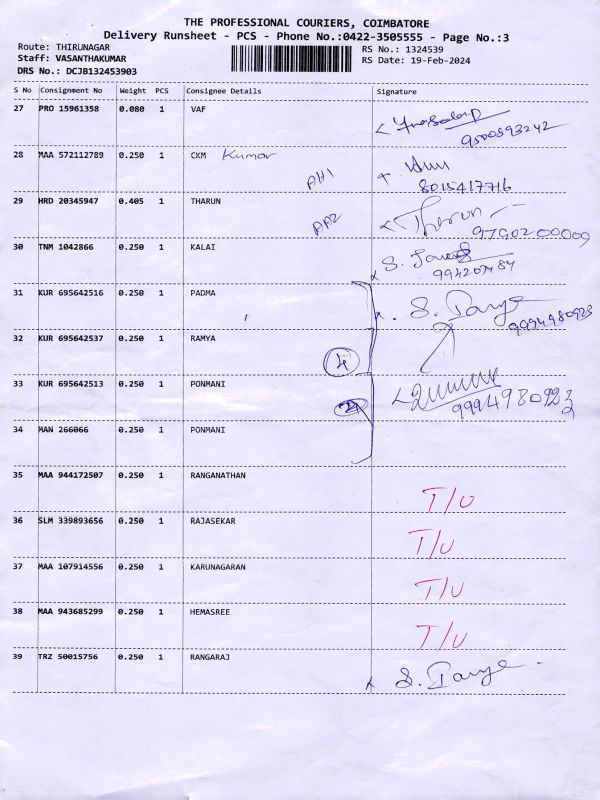 THE PROFESSIONAL COURIERS, COIMBATORE
Delivery Runsheet - PCS - Phone No.:0422-3505555 - Page No.:3
Route: THIRUNAGAR
RS No.: 1324539
Staff: VASANTHAKUMAR
RS Date: 19-Feb-2024
DRS No.: DCJB132453903
S No Consignment No Weight PCS Consignee Details Signature
27 PRO 15961358 0.080 1 VAF
9500893242
28 MAA 572112789 0.250 1 CKM Kumar
AH1 8015417716
29 HRD 20345947 0.405 1 THARUN Tharun
AA2 9790200009
30 TNM 1042866 0.250 1 KALAI
31 KUR 695642516 0.250 1 PADMA S.
9994980923
32 KUR 695642537 0.250 1 RAMYA
4
33 KUR 695642513 0.250 1 PONMANI
9994980923
34 MAN 266066 0.250 1 PONMANI
35 MAA 944172507 0.250 1 RANGANATHAN T/U
36 SLM 339893656 0.250 1 RAJASEKAR T/U
37 MAA 107914556 0.250 1 KARUNAGARAN T/U
38 MAA 943685299 0.250 1 HEMASREE T/U
39 TRZ 50015756 0.250 1 RANGARAJ S.